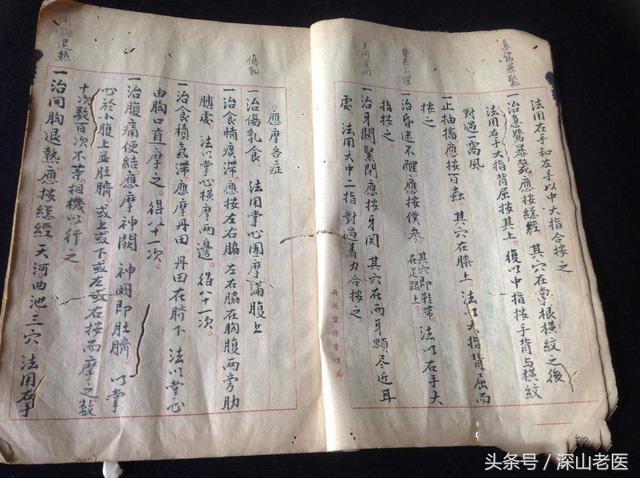 急驚暴斃
法用右手和左手以中大指合按之
一治急驚暴斃應按總經 其穴在掌根橫紋之後
法用右手大指背屈按其上 復以中指按手背與橫紋
對過一窩風
一止抽搐應按百蟲 其穴在膝上 法以大指背屈而
按之
昏迷不醒
一治昏迷不醒應按僕參 其穴即鞋帶在足跟上 法以右手大
指按之
牙關緊閉
一治牙關緊閉應按牙関 其穴在两牙顋尽近耳
處 法用大中二指對過着力合按之
應摩各症
傷乳
一治傷乳食 法用掌心團摩滿腹上
一治食積痰滯應按左右脇 左右脇在胸腹两旁肋
膊處 法以掌心橫摩两邊 得八十一次
一治食積氣滯應摩丹田 丹田在臍下 法以掌心
由胸口直摩之 得八十一次
一治腹痛便結應摩神闕 神闕即肚臍 以掌
心於小腹上並肚臍 或上或下或左或右按而摩之或
十次数百次不等相機以行之
開胸退熱
一治開胸退熱 應按總經 天河曲池三穴 法用右手
头条号 / 深山老医